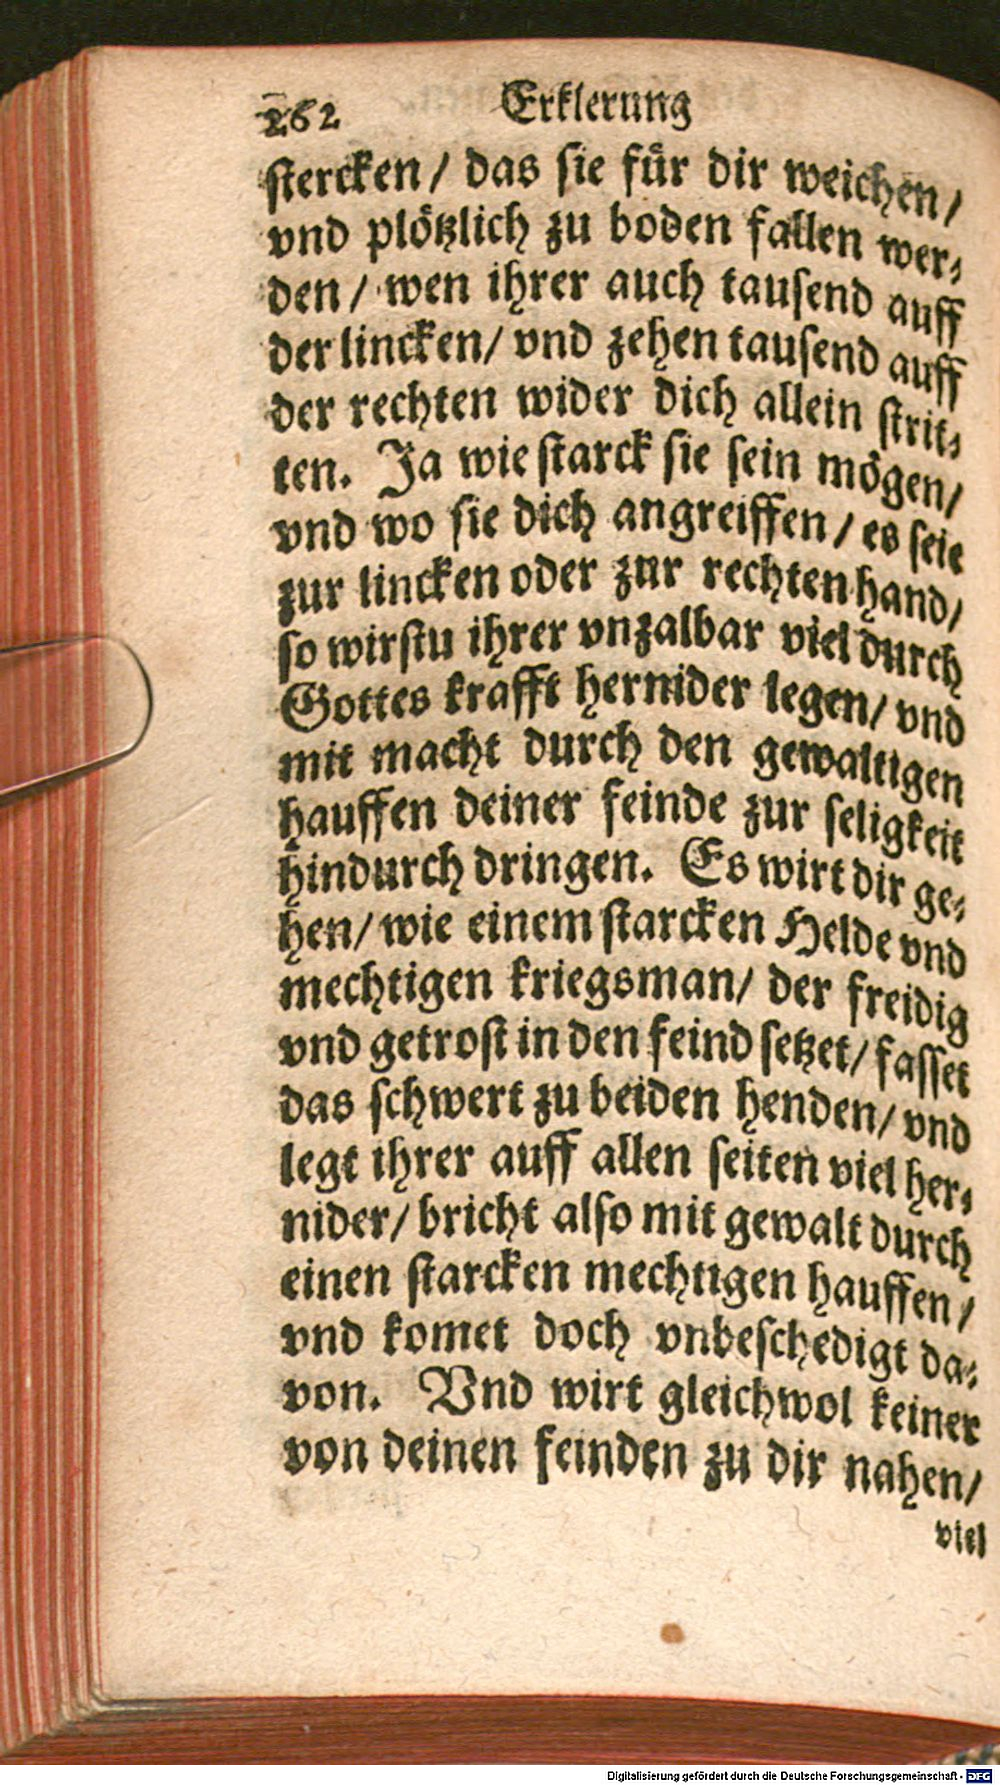 262 Erklerung
stercken / das sie für dir weichen /
vnd plötzlich zu boden fallen wer-
den / wen ihrer auch tausend auff
der lincken / vnd zehen tausend auff
der rechten wider dich allein strit-
ten. Ja wie starck sie sein mögen /
vnd wo sie dich angreiffen / es seie
zur lincken oder zur rechten hand /
so wirstu ihrer vnzalbar viel durch
Gottes krafft hernider legen / vnd
mit macht durch den gewaltigen
hauffen deiner feinde zur seligkeit
hindurch dringen. Es wirt dir ge-
hen / wie einem starcken Helde vnd
mechtigen kriegsman / der freidig
vnd getrost in den feind setzet / fasset
das schwert zu beiden henden / vnd
legt ihrer auff allen seiten viel her-
nider / bricht also mit gewalt durch
einen starcken mechtigen hauffen /
vnd komet doch vnbeschedigt da-
von. Vnd wirt gleichwol keiner
von deinen feinden zu dir nahen /
viel
Digitalisierung gefördert durch die Deutsche Forschungsgemeinschaft - DFG